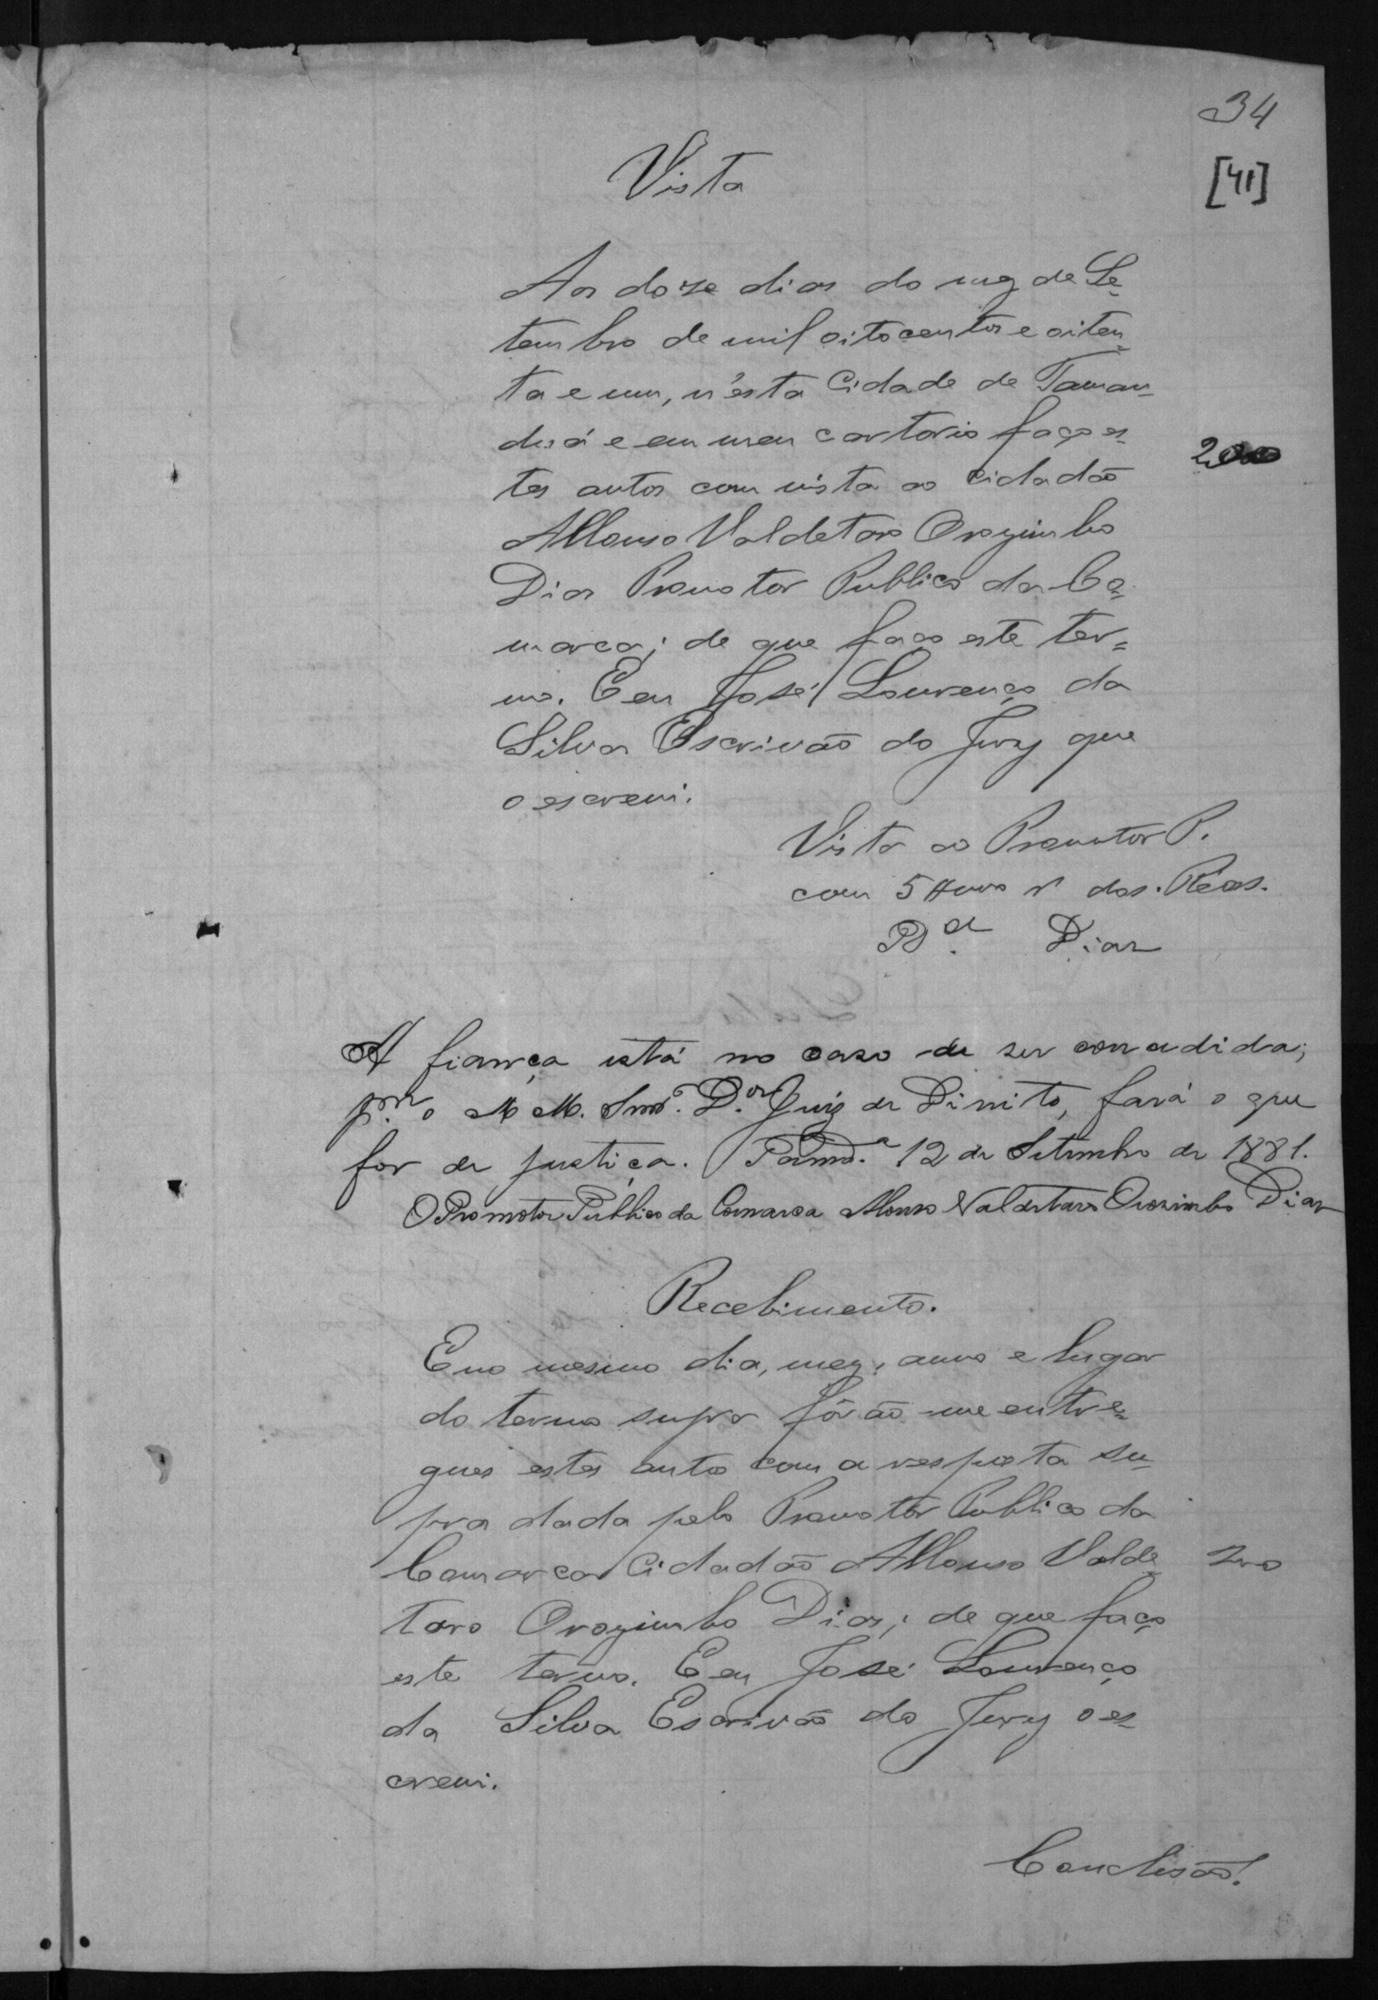 34
[41]
Vista
Aos doze dias do mez de Se-
tembro de mil oitocentos e oiten-
ta e um, n'esta Cidade de Taman-
duá e em meu cartorio faço es-
tes autos com vista ao cidadão
200
Affonso Valdetaro Orozimbo
Dias Promotor Publico da Co-
marca; de que faço este ter-
mo. E eu José Lourenço da
Silva Escrivão do Jury que
o escrevi.
Vista ao Promotor P.
com 5 dos Réos.
Dias
A fiança está no caso de ser concedida;
o M. M. Snr. D.or Juiz de Direito, fará o que
for de justiça. Tamd.a 12 de Setembro de 1881.
O Promotor Publico da Comarca Afonso Valdetaro Orozimbo Dias
Recebimento.
E no mesmo dia, mez, anno e lugar
do termo supra fôrão-me entre-
gues estes autos com a resposta su-
pra dada pelo Promotor Publico da
Comarca Cidadão Affonso Valde-
200
taro Orozimbo Dias; de que faço
este termo. E eu José Lourenço
da Silva Escrivão do Jury o es-
crevi.
Conclusão.